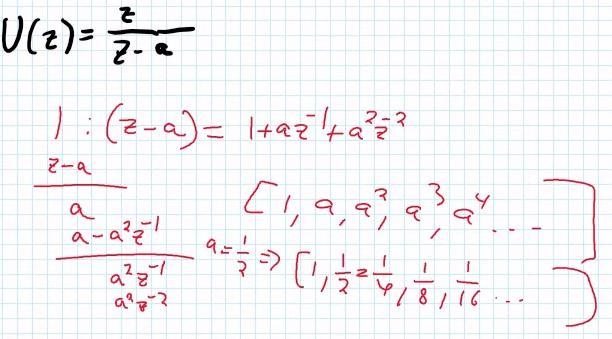 U(z) = z / (z - a)
1 : (z - a) = 1 + az^-1 + a^2 z^-2
z - a
a
a - a^2 z^-1
a^2 z^-1
a^2 z^-2
[1, a, a^2, a^3, a^4 ... ]
a = 1/2 => [1, 1/2 = 1/4, 1/8, 1/16 ... ]